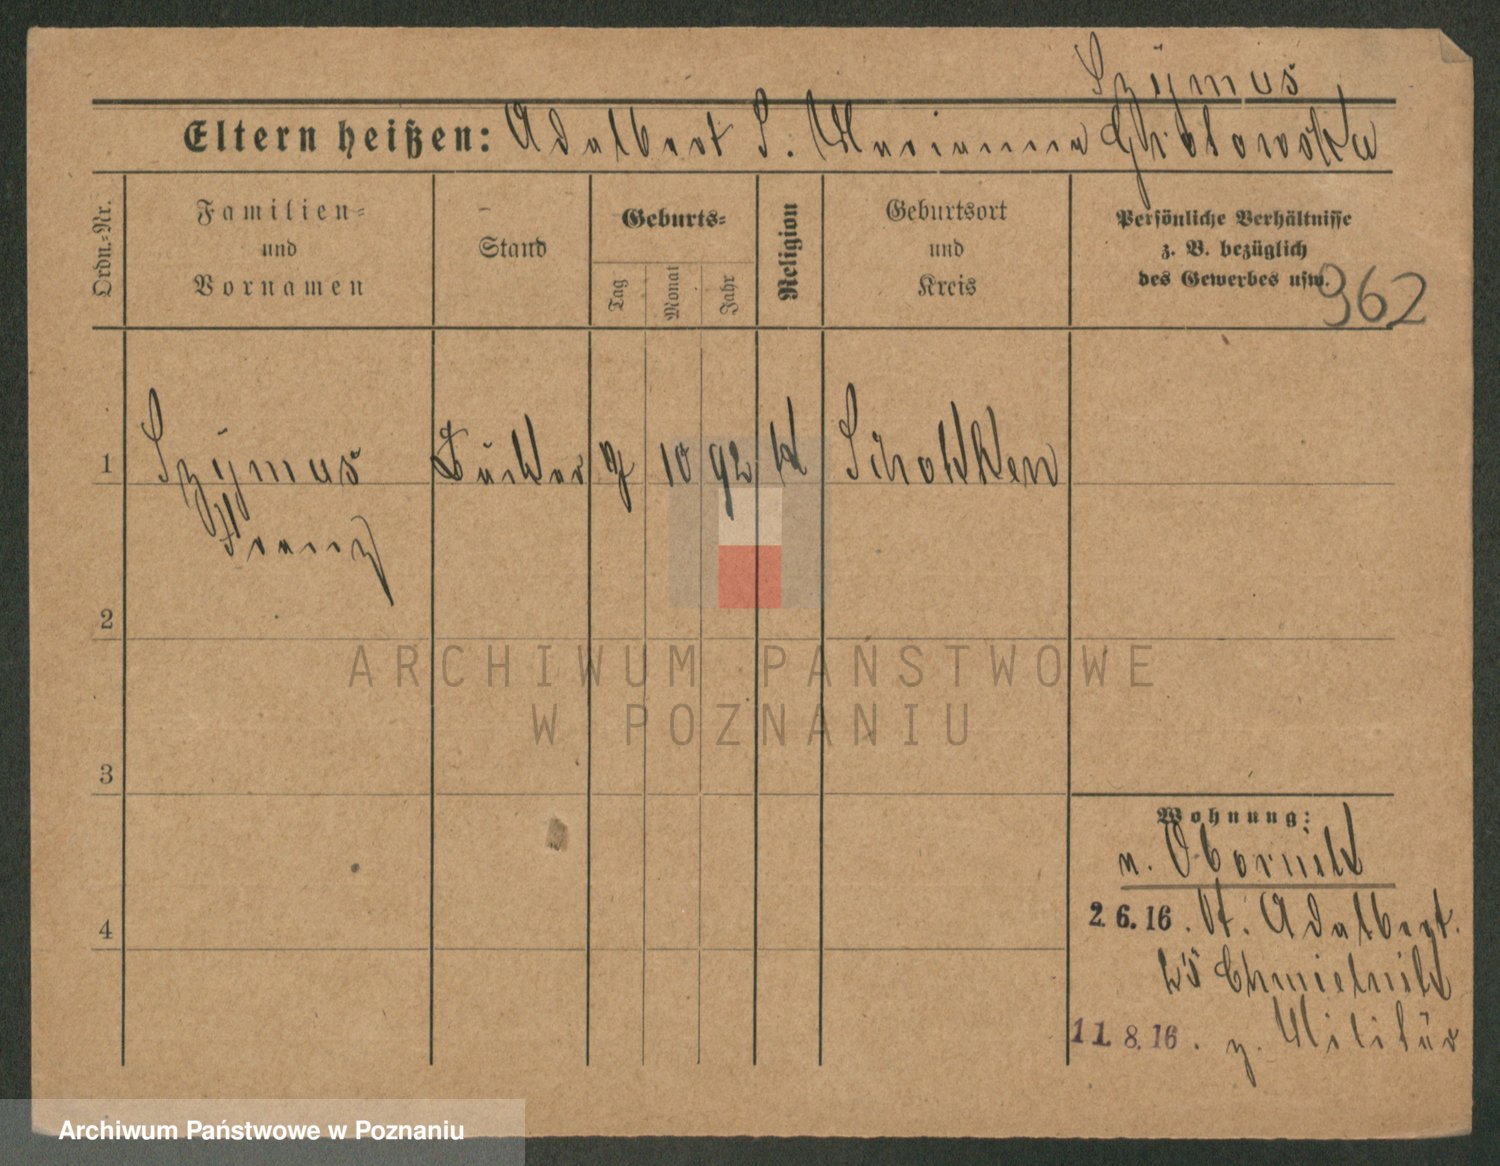 Szymus
Eltern heißen: Adalbert S. Marianna
Ordn.-Nr.
Familien-
und
Vornamen
Stand
Geburts-
Tag
Monat
Jahr
Religion
Geburtsort
und
Kreis
Persönliche Verhältnisse
z. B. bezüglich
des Gewerbes usw.
962
1 Szymus 10 92 k Schokken
Franz
2
3
4
Wohnung:
n. Obornik
2.6.16. St. Adalbert.
25 Chmielnik
11.8.16. z. Militär
ARCHIWUM PAŃSTWOWE
W POZNANIU
Archiwum Państwowe w Poznaniu